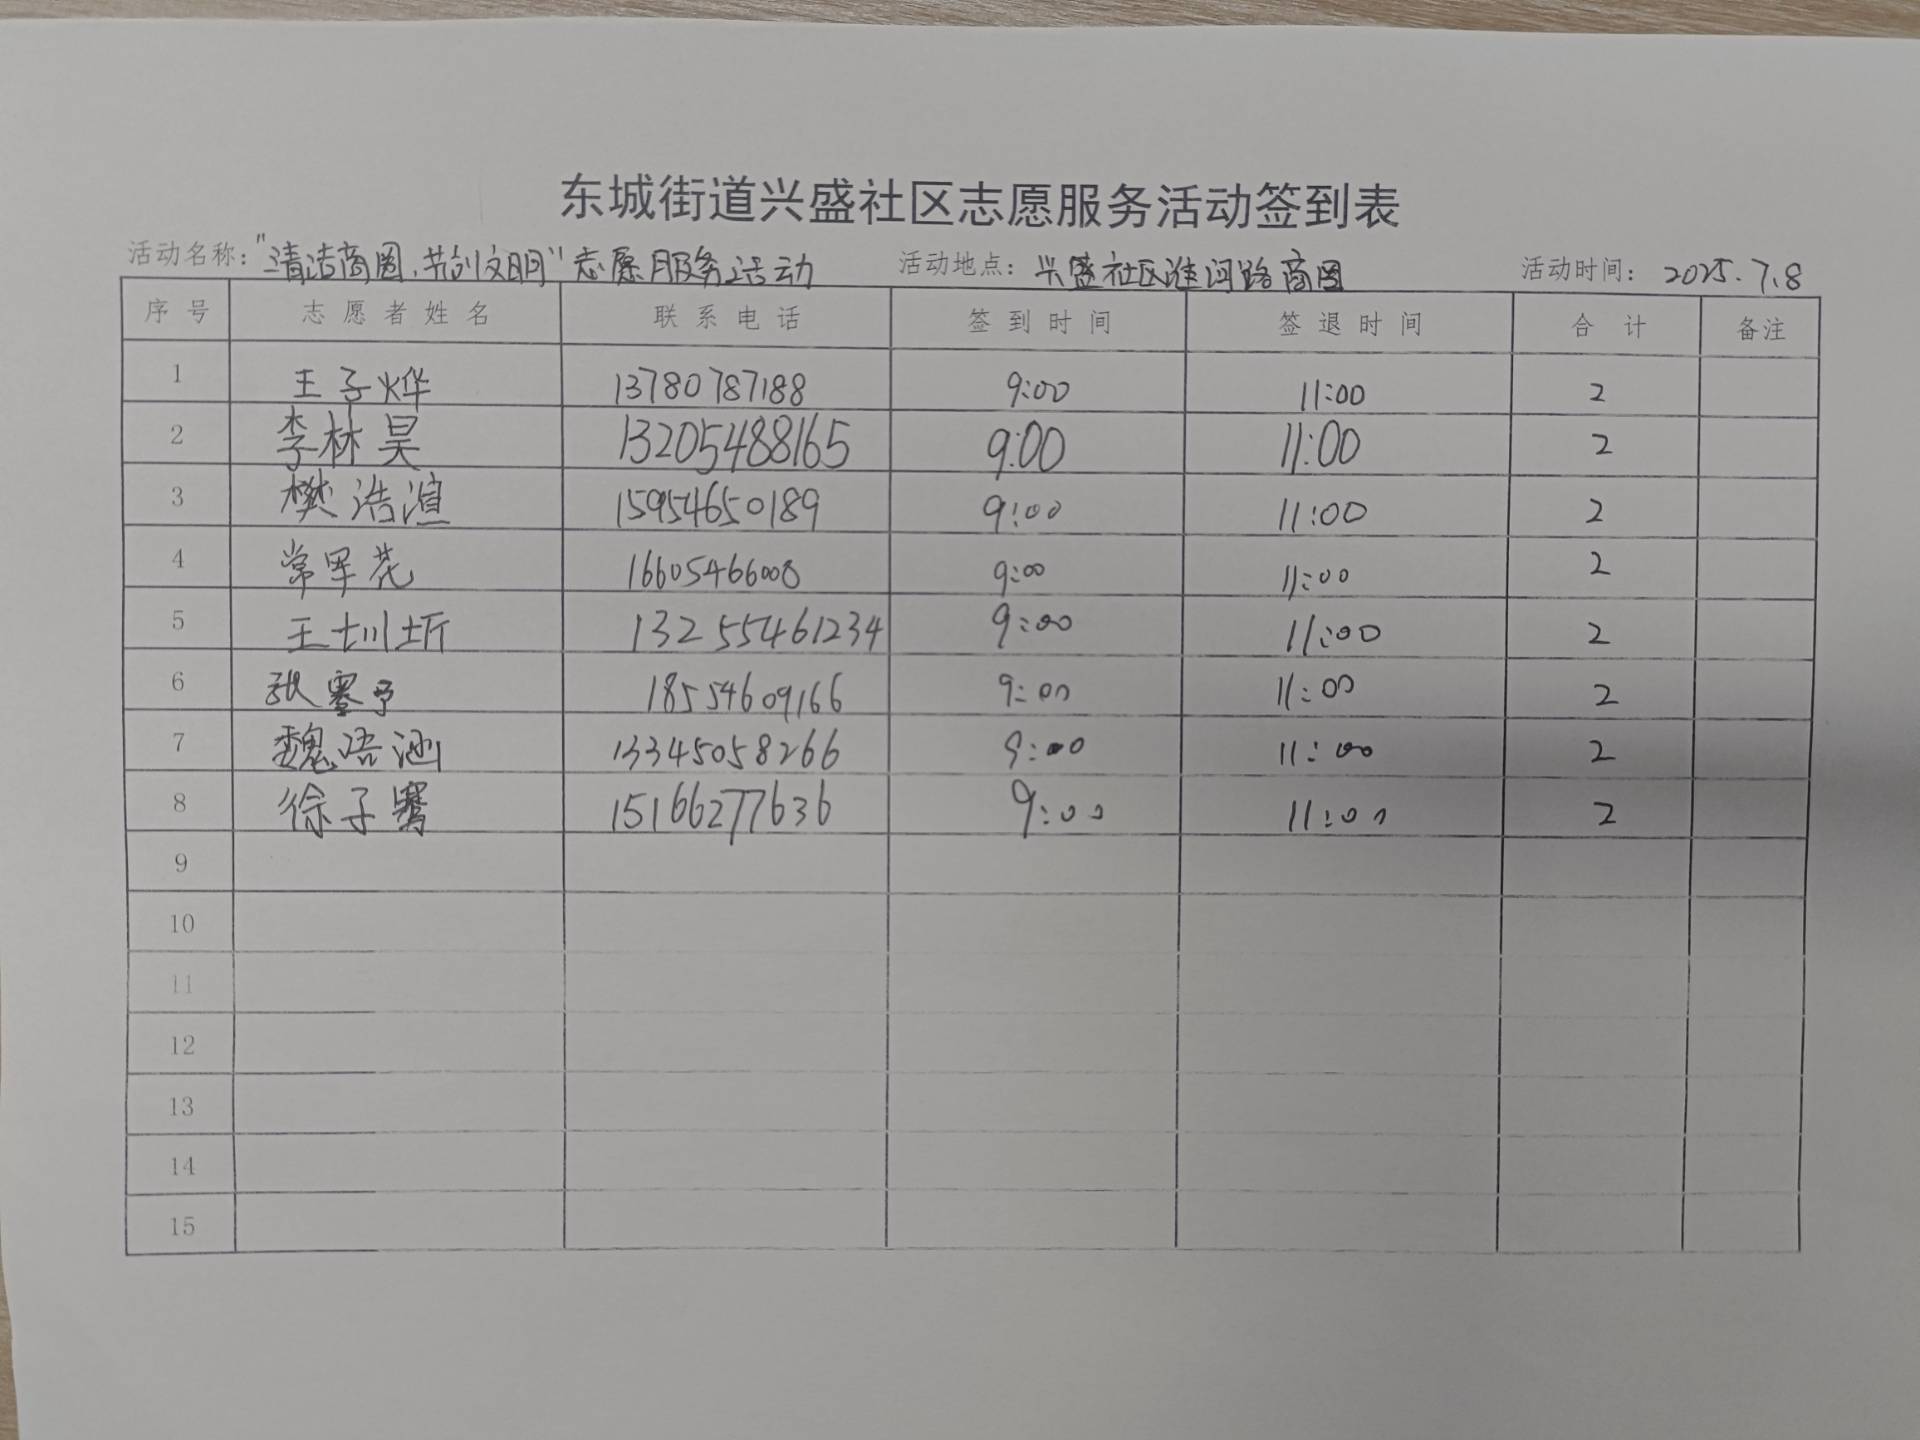 东城街道兴盛社区志愿服务活动签到表
活动名称："清洁商圈，共创文明"志愿服务活动 活动地点：兴盛社区淮河路商圈 活动时间：2025.7.8
序号 志愿者姓名 联系电话 签到时间 签退时间 合计 备注
1 王子烨 13780787188 9:00 11:00 2
2 李林昊 13205488165 9:00 11:00 2
3 樊浩渲 15954650189 9:00 11:00 2
4 常军花 16605466008 9:00 11:00 2
5 王圳圻 13255461234 9:00 11:00 2
6 张 予 18554609166 9:00 11:00 2
7 魏语涵 13345058266 9:00 11:00 2
8 徐子骞 15166277636 9:00 11:00 2
9
10
11
12
13
14
15